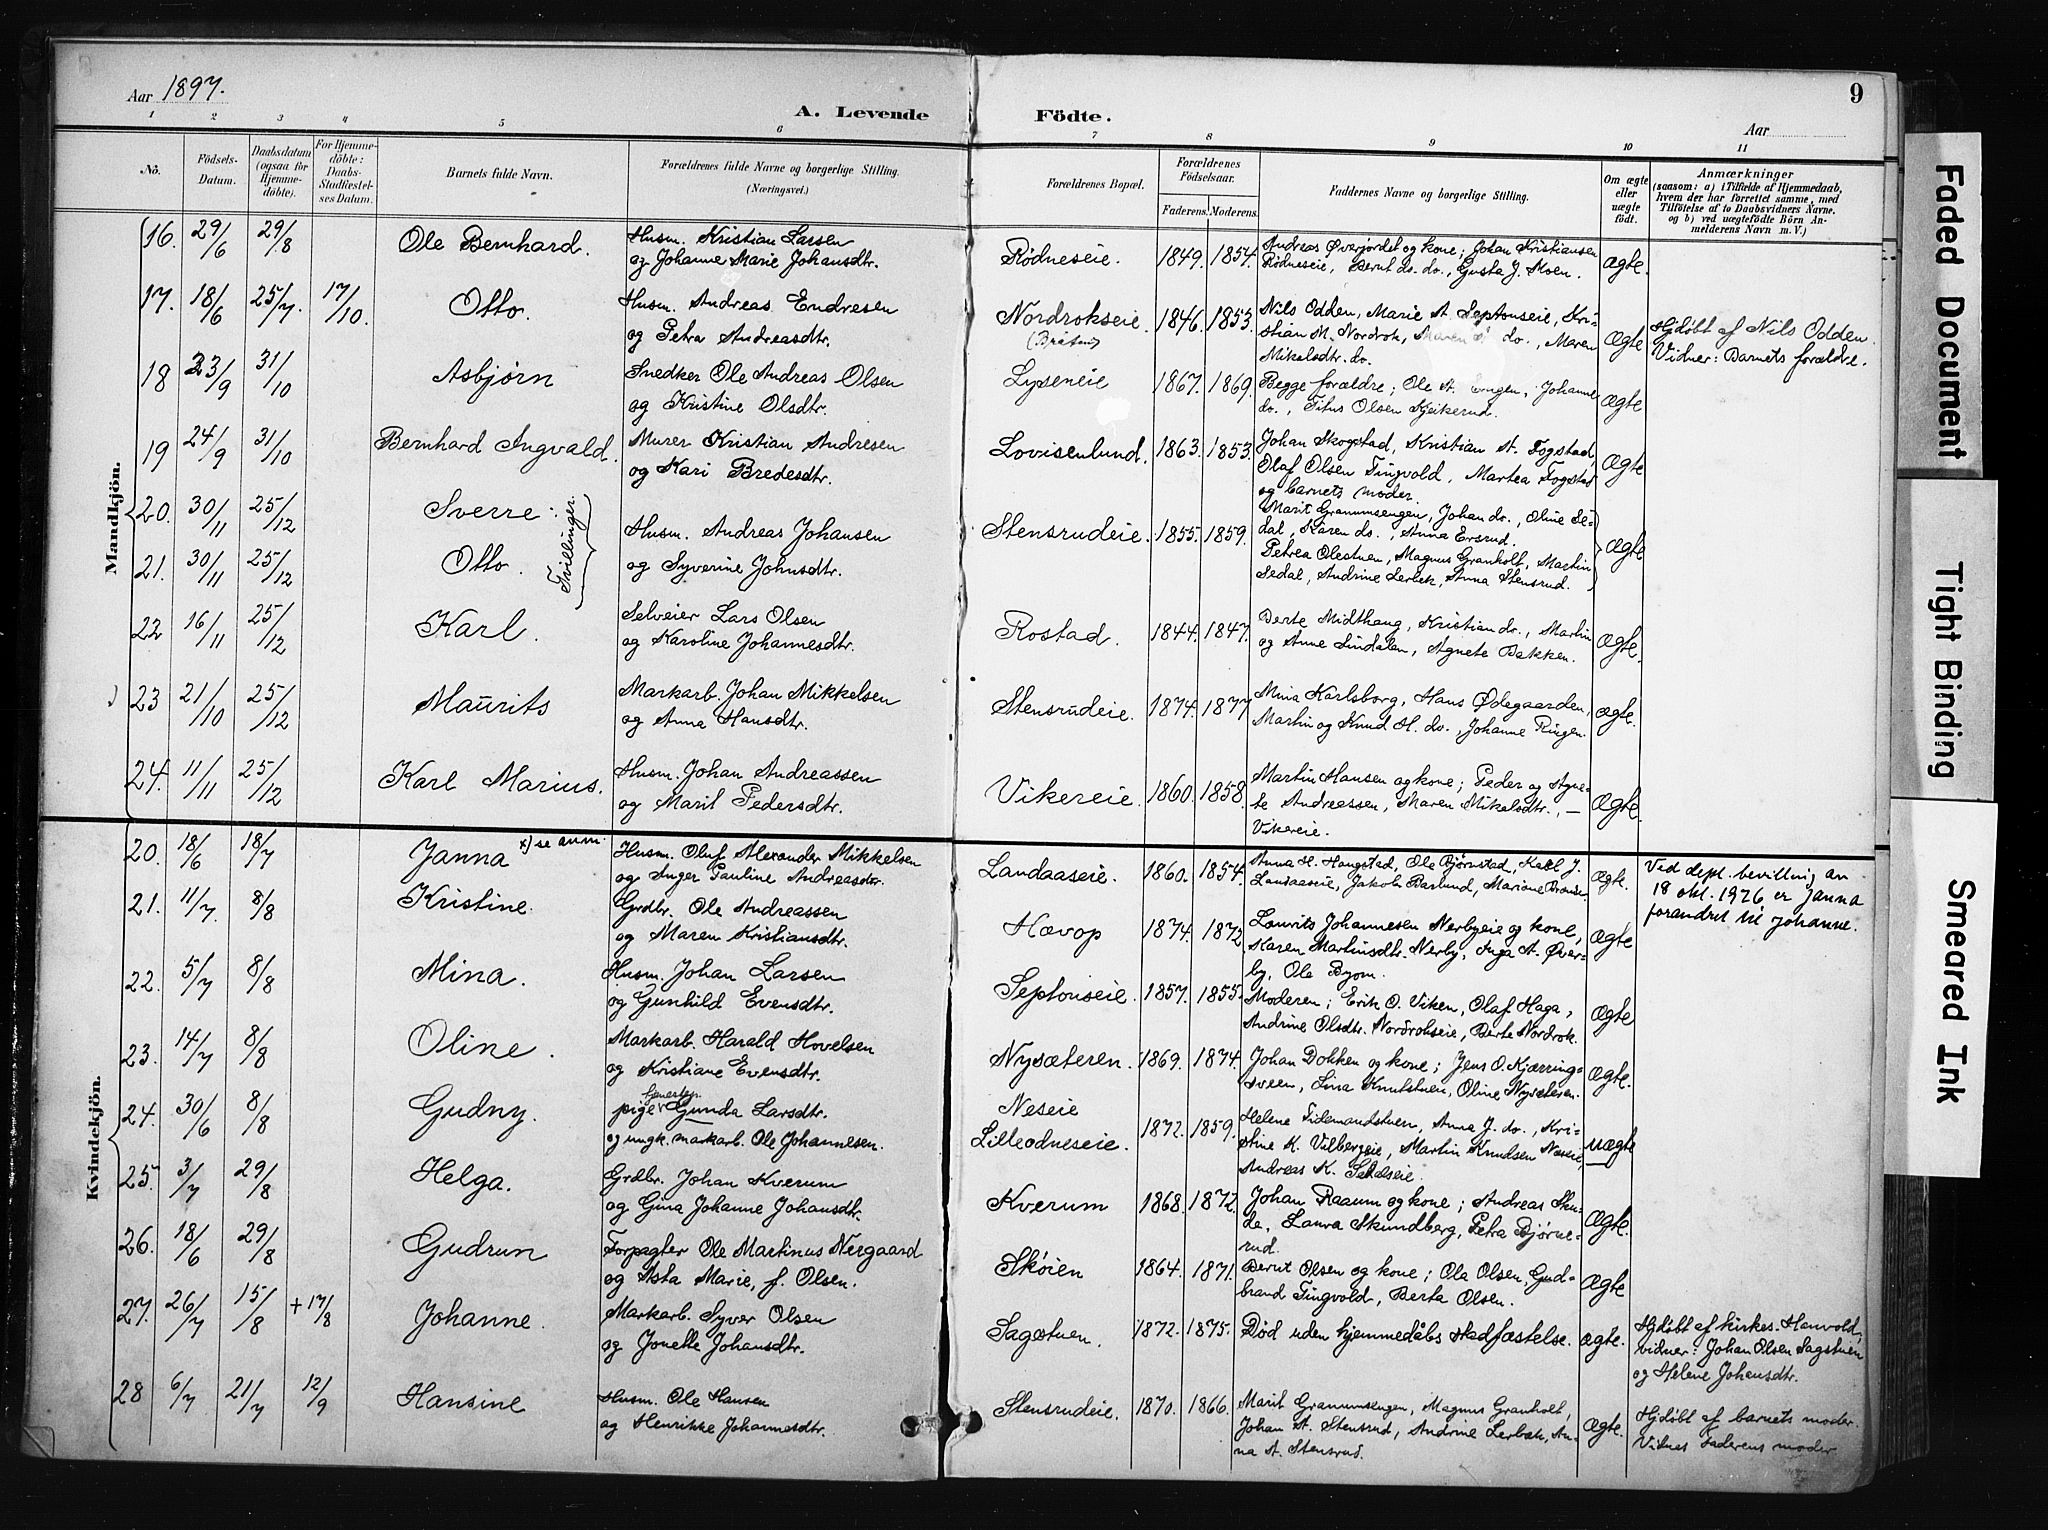 Aar 1897.
A. Levende
1 2 3 4 5 6
No. Födsels-Datum. Daabsdatum (ogsaa for Hjemmedöbte). For Hjemmedöbte: Daabs-Stadfæstelses Datum. Barnets fulde Navn. Forældrenes fulde Navne og borgerlige Stilling. (Næringsvei.)
Mandkjön.
16. 29/6 29/8 Ole Bernhard. Husm. Kristian Larsen
og Johanne Marie Johansdtr.
17. 18/6 25/7. 17/10. Otto. Husm. Andreas Endresen
og Petra Andreasdtr.
18 23/9 31/10 Asbjørn Snedker Ole Andreas Olsen
og Kristine Olsdtr.
19 24/9 31/10 Bernhard Ingvald. Murer Kristian Andresen
og Kari Bredesdtr.
20. 30/11 25/12 Sverre.
Tvillinger.
Husm. Andreas Johansen
21. 30/11 25/12 Otto. og Syverine Johnsdtr.
22 16/11 25/12 Karl. Selveier Lars Olsen
og Karoline Johannesdtr.
23 21/10 25/12 Maurits Markarb. Johan Mikkelsen
og Anna Hansdtr.
24. 11/11 25/12 Karl Marius. Husm. Johan Andreassen
og Marit Pedersdtr.
Kvindekjön.
20. 18/6 18/7 Janna x) se anm. Husm. Oluf Alexander Mikkelsen
og Inger Pauline Andreasdtr.
21. 11/7. 8/8 Kristine. Grdbr. Ole Andreassen
og Maren Kristiansdtr.
22. 5/7 8/8 Mina. Husm. Johan Larsen
og Gunhild Evensdtr.
23. 14/7 8/8 Oline. Markarb. Harald Hovelsen
og Kristiane Evensdtr.
24. 30/6 8/8 Gudny. pige Gunda Larsdtr.
og ungk. markarb. Ole Johannesen.
25. 3/7 29/8 Helga. Grdbr. Johan Kverum
og Gina Johanne Johansdtr.
26. 18/6 29/8 Gudrun Forpagter Ole Martinus Nergaard
og Asta Marie, f. Olsen.
27. 26/7 15/8 +17/8 Johanne. Markarb. Syver Olsen
og Jonette Johansdtr.
28 6/7 21/7 12/9 Hansine Husm. Ole Hansen
og Henrikke Johannesdtr.
9
Födte.
Aar
7 8 9 10 11
Forældrenes Bopæl. Forældrenes Födselsaar. Faderens. Moderens. Faddernes Navne og borgerlige Stilling. Om ægte eller uægte födt. Anmærkninger
(saasom: a) i Tilfælde af Hjemmedaab, hvem der har forrettet samme, med Tilföielse af to Daabsvidners Navne, og b) ved uægtefödte Börn Anmelderens Navn m. V.)
Rødneseie. 1849. 1854. Andreas Øverjordet og kone; Johan Kristiansen
Rødneseie, Bernt do. do., Gusta J. Moen. Ægte.
Nordrokseie (Bråten) 1846. 1853. Nils Odden, Marie A. Septonseie, Kri-
stian M. Nordrok, Maren do., Maren
Mikalsdtr. do. Ægte Hjdøbt af Nils Odden.
Vidner: Barnets forældre.
Lyseneie 1867. 1869. Begge forældre; Ole A. Engen, Johanne
do., Titus Olsen Skeikerud. Ægte
Lovisenlund. 1863. 1853. Johan Skogstad, Kristian A. Fogstad,
Olaf Olsen Tingvold, Martea Fogstad
og barnets moder. Ægte
Stensrudeie. 1855. 1859. Marit Granumsengen, Johan do., Oline Se-
dal, Karen do., Anna Ersrud.
Petrea Olestuen, Magnus Granholt, Martin
Sedal, Andrine Lerbæk, Anna Stensrud. Ægte
Rostad. 1844. 1847. Berte Midthaug, Kristian do., Martin
og Anne Lindalen, Agnete Bakken. Ægte.
Stensrudeie. 1874. 1877 Mina Karlsborg, Hans Ødegaarden,
Martin og Knud H. do., Johanne Ringen. Ægte.
Vikereie. 1860. 1858. Martin Hansen og kone; Peder og Agne-
te Andreassen, Maren Mikalsdtr., —
Vikereie. Ægte.
Landaaseie. 1860. 1854. Anna H. Haugstad, Ole Bjørnstad, Karl J.
Landaaseie, Jakob Barlund, Mariane Ægte. Ved dept. bevilling av
18 okt. 1926 er Janna
forandret til Johanne.
Hævop 1874. 1872 Laurits Johannesen Nerbyeie og kone,
Karen Martinsdtr. Nerby, Inga A. Øver-
by, Ole Byom. Ægte
Septonseie. 1857. 1855. Moderen; Erik O. Viken, Olaf Haga,
Andrine Olsdtr. Nordrokseie, Berte Nordrok. Ægte
Nysæteren. 1869. 1874. Johan Dokken og kone; Jens O. Kjærring-
sveen, Lina Knutstuen, Oline Nysæteren. Ægte.
Neseie
Lilleodneseie. 1872. 1859. Helene Tidemandstuen, Anna J. do., Kri-
stine K. Vilbergeie, Martin Knudsen Næseie,
Andreas K. uægte
Kverum 1868. 1872. Johan Raaum og kone; Andreas Sku-
de, Laura Skundberg, Petra Bjørne-
rud. Ægte.
Skøien 1864. 1871. Bernt Olsen og kone; Ole Olsen, Gud-
brand Tingvold, Berta Olsen. Ægte
Sagstuen. 1872. 1875. Død uden hjemmedåbs stadfæstelse. Ægte. Hjdøbt af kirkes. Hanvold,
vidner: Johan Olsen Sagstuen
og Helene Johansdtr.
Stensrudeie. 1870. 1866. Marit Granumsengen, Magnus Granholt,
Johan A. Stensrud, Andrine Lerbæk, An-
na A. Stensrud. Ægte. Hjdøbt af barnets moder.
Vidnes Faderens moder
Faded Document
Tight Binding
Smeared Ink